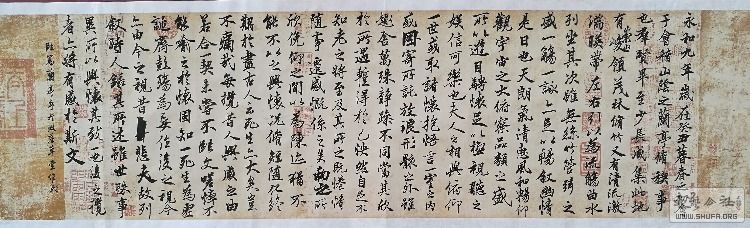 永和九年歲在癸丑暮春之初會
于會稽山陰之蘭亭脩稧事
也群賢畢至少長咸集此地
有崇山峻領茂林脩竹又有清流激
湍暎帶左右引以為流觴曲水
列坐其次雖無絲竹管弦之
盛一觴一詠亦足以暢叙幽情
是日也天朗氣清惠風和暢仰
觀宇宙之大俯察品類之盛
所以遊目騁懷足以極視聽之
娛信可樂也夫人之相與俯仰
一世或取諸懷抱悟言一室之內
或因寄所託放浪形骸之外雖
趣舍萬殊靜躁不同當其欣
於所遇暫得於己快然自足不
知老之將至及其所之既惓情
隨事遷感慨係之矣向之所
欣俛仰之間以為陳迹猶不
能不以之興懷況脩短隨化終
期於盡古人云死生亦大矣豈
不痛哉每攬昔人興感之由
若合一契未嘗不臨文嗟悼不
能喻之於懷固知一死生為虛
誕齊彭殤為妄作後之視今
亦由今之視昔悲夫故列
叙時人錄其所述雖世殊事
異所以興懷其致一也後之攬
者亦將有感於斯文
WWW.SHUFA.ORG